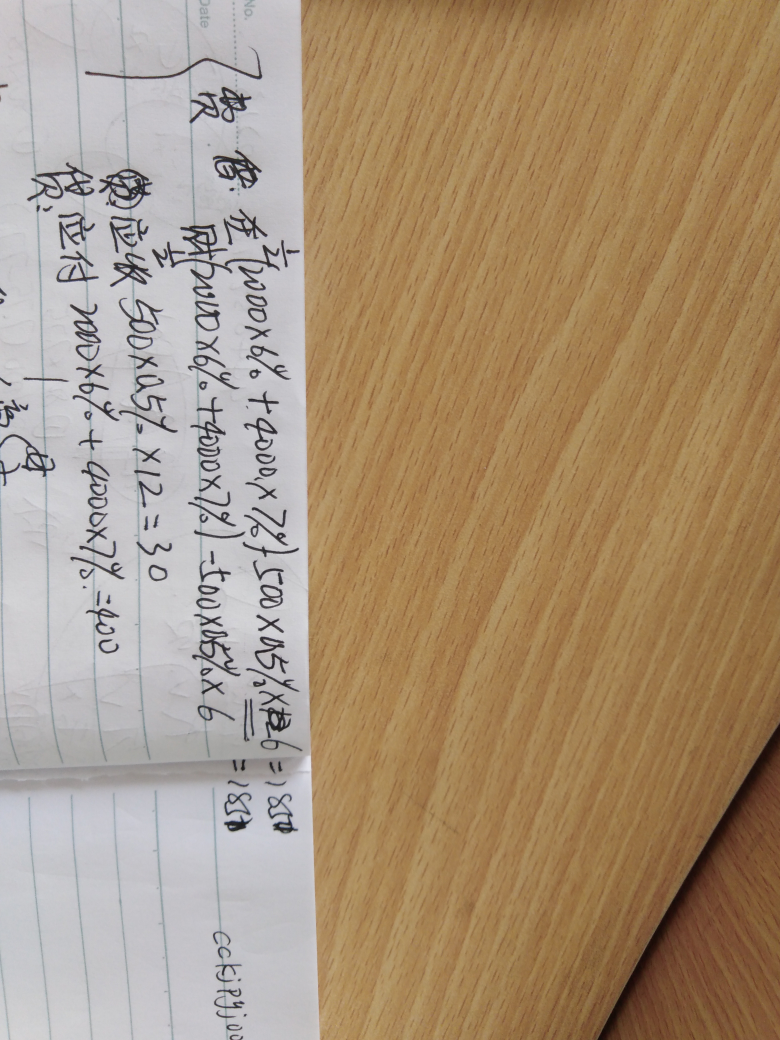 No.
Date
费 借: 在 1/2(2000×6% + 4000×7%)-500×0.5%×6 = 185
财 1/2(2000×6% + 4000×7%)-500×0.5%×6 = 185
应收 500×0.5%×12=30
贷: 应付 2000×6% + 4000×7% =400